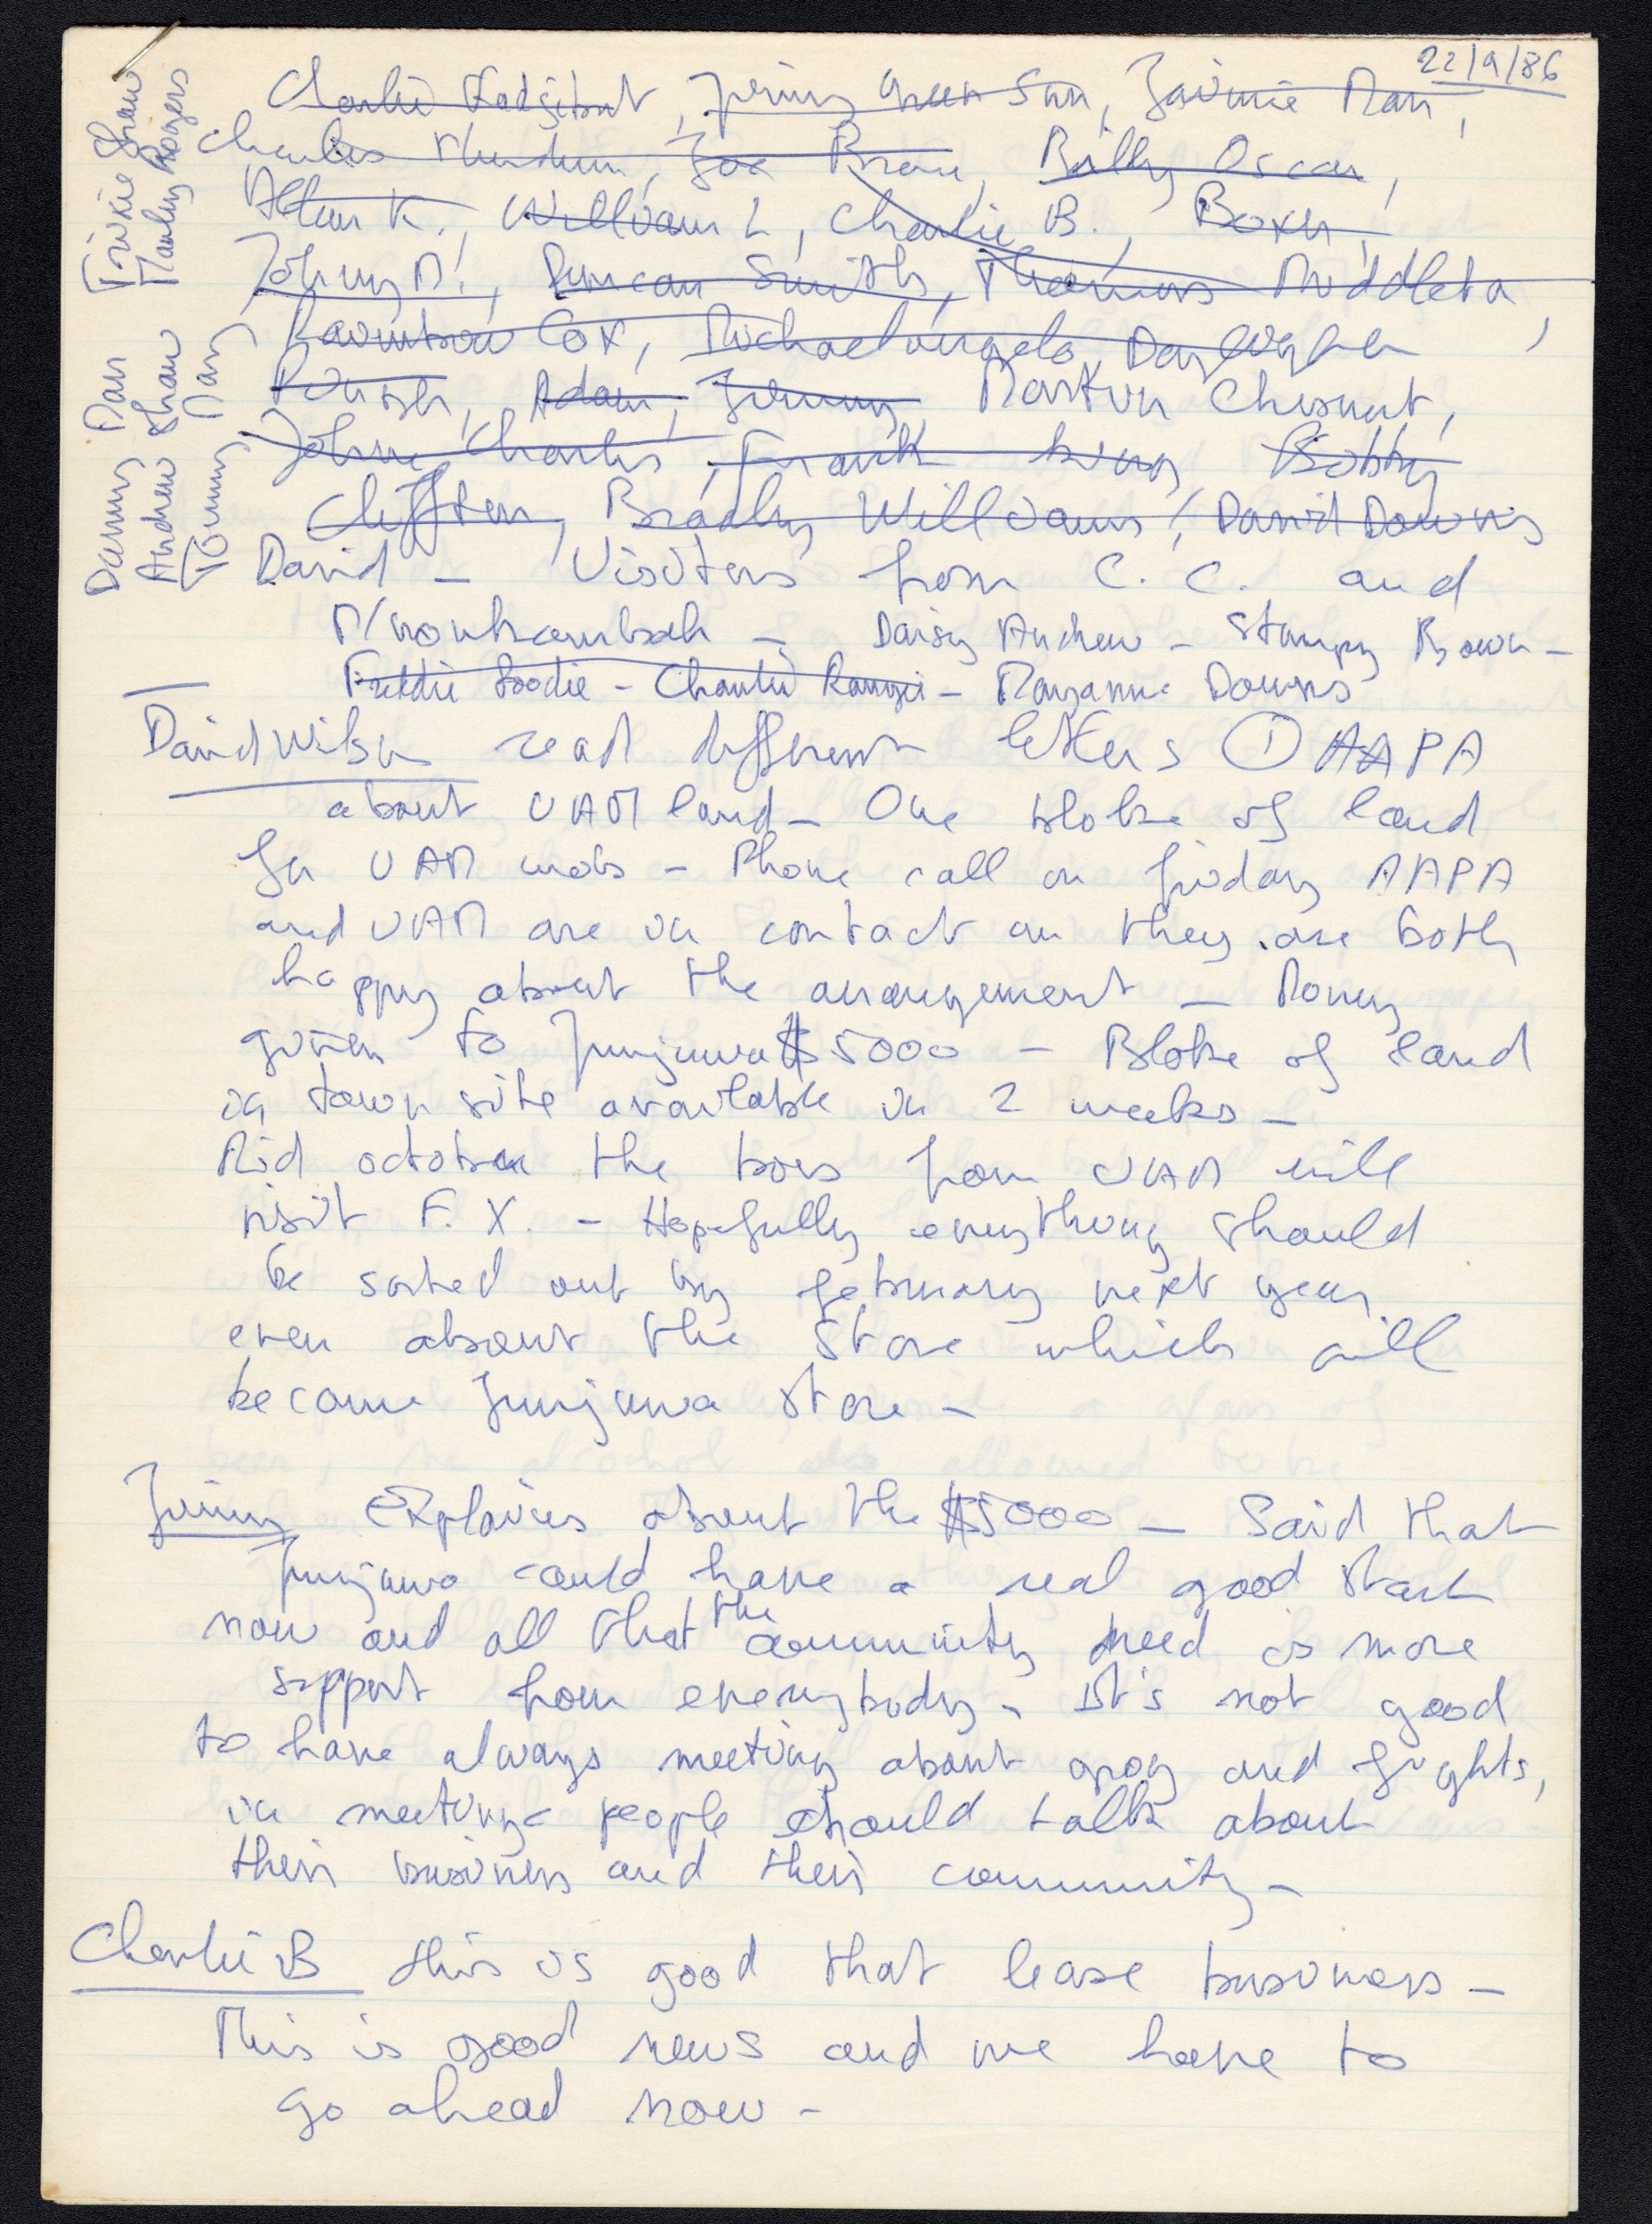 22/9/86
Charlie , Jimmy Green Sun, Jaimie Man,
Charlies , Joe Brown, Billy Oscar,
Allan K., William L, Charlie B., Boxer,
Johnny M., Duncan Smith, Thomas Middleton,
Cox, Michaelangelo,
, Adam, Jimmy, Martin Chesnut,
John Charles, Frank king, Bobby
Cliffton, Bradley Williams, David Downs
David - Visitors from C. C. and
M/nonkambah - Daisy Andrew - Stumpy Brown -
Freddie Goodie - Charlie - Maryanne Downs
Trixie Shaw
Mauley Rogers
Danny Man
Andrew Shaw
Tommy May
David Wilson read different letters ① AAPA
about UAM land - One bloke of land
for UAM mob - Phone call on friday AAPA
and UAM are in contact an they are both
happy about the arrangement - Money
given to Junjuwa $5000 - Bloke of land
in town site available in 2 weeks -
Mid october the boss from UAM will
visit F. X. - Hopefully everything should
be sorted out by february next year
even about the Store which will
become Junjuwa Store -
Jimmy Explaines about the $5000 - Said that
Junjuwa could have a real good start
now and all that the community need is more
support from everybody - It's not good
to have always meeting about grog and fights,
in meetings people should talk about
their business and their community -
Charlie B this is good that lease business -
This is good news and we have to
go ahead now -